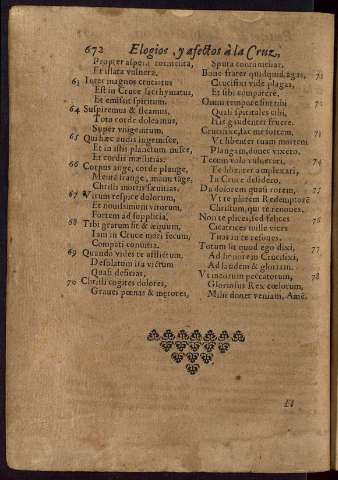 672 Elogios, y afectos à la Cruz,
Propter aspera tormenta,
Et illata vulnera.
63 Inter magnos cruciatus
Est in Cruce lachrymatus,
Et emisit spiritum.
64 Suspiremus & fleamus,
Toto corde doleamus,
Super vnigenitum.
65 Qui hæc audis ingemisce,
Et in istis planctum misce,
Et cordis mæstitias.
66 Corpus ange, corde plange,
Mentem frange, manu tange,
Christi mortis sævitias.
67 Virum respice dolorum,
Et nouissimum virorum,
Fortem ad supplitia.
68 Tibi gratum sit & æquum,
Iam in Cruce mori secum,
Compati conuitia.
69 Quando vides te afflictum,
Desolatum ita victum
Quasi desieras,
70 Christi cogites dolores,
Graues pœnas & mærores,
Sputa contumeliat.
Bone frater quidquid agas, 71
Crucifixi vide plagas,
Et tibi compatere.
Omni tempore sint tibi 72
Quasi spiritales cibi,
His gaudenter fruere.
Crucifixe, fac me fortem, 73
Vt libenter tuam mortem
Plangam, donec vixero.
Tecum volo vulnerari, 74
Te libenter amplexari,
In Cruce desidero.
Da dolorem quasi rorem, 75
Vt te plorem Redemptorem
Christum, qui te renoues.
Non te plices, sed felices 76
Cicatrices mille vices
Tua in te refoues.
Totum sit quod ego dixi, 77
Ad honorem Crucifixi,
Ad laudem & gloriam.
Vt meorum peccatorum, 78
Gloriosus Rex cœlorum,
Mihi donet veniam, Amē.
El